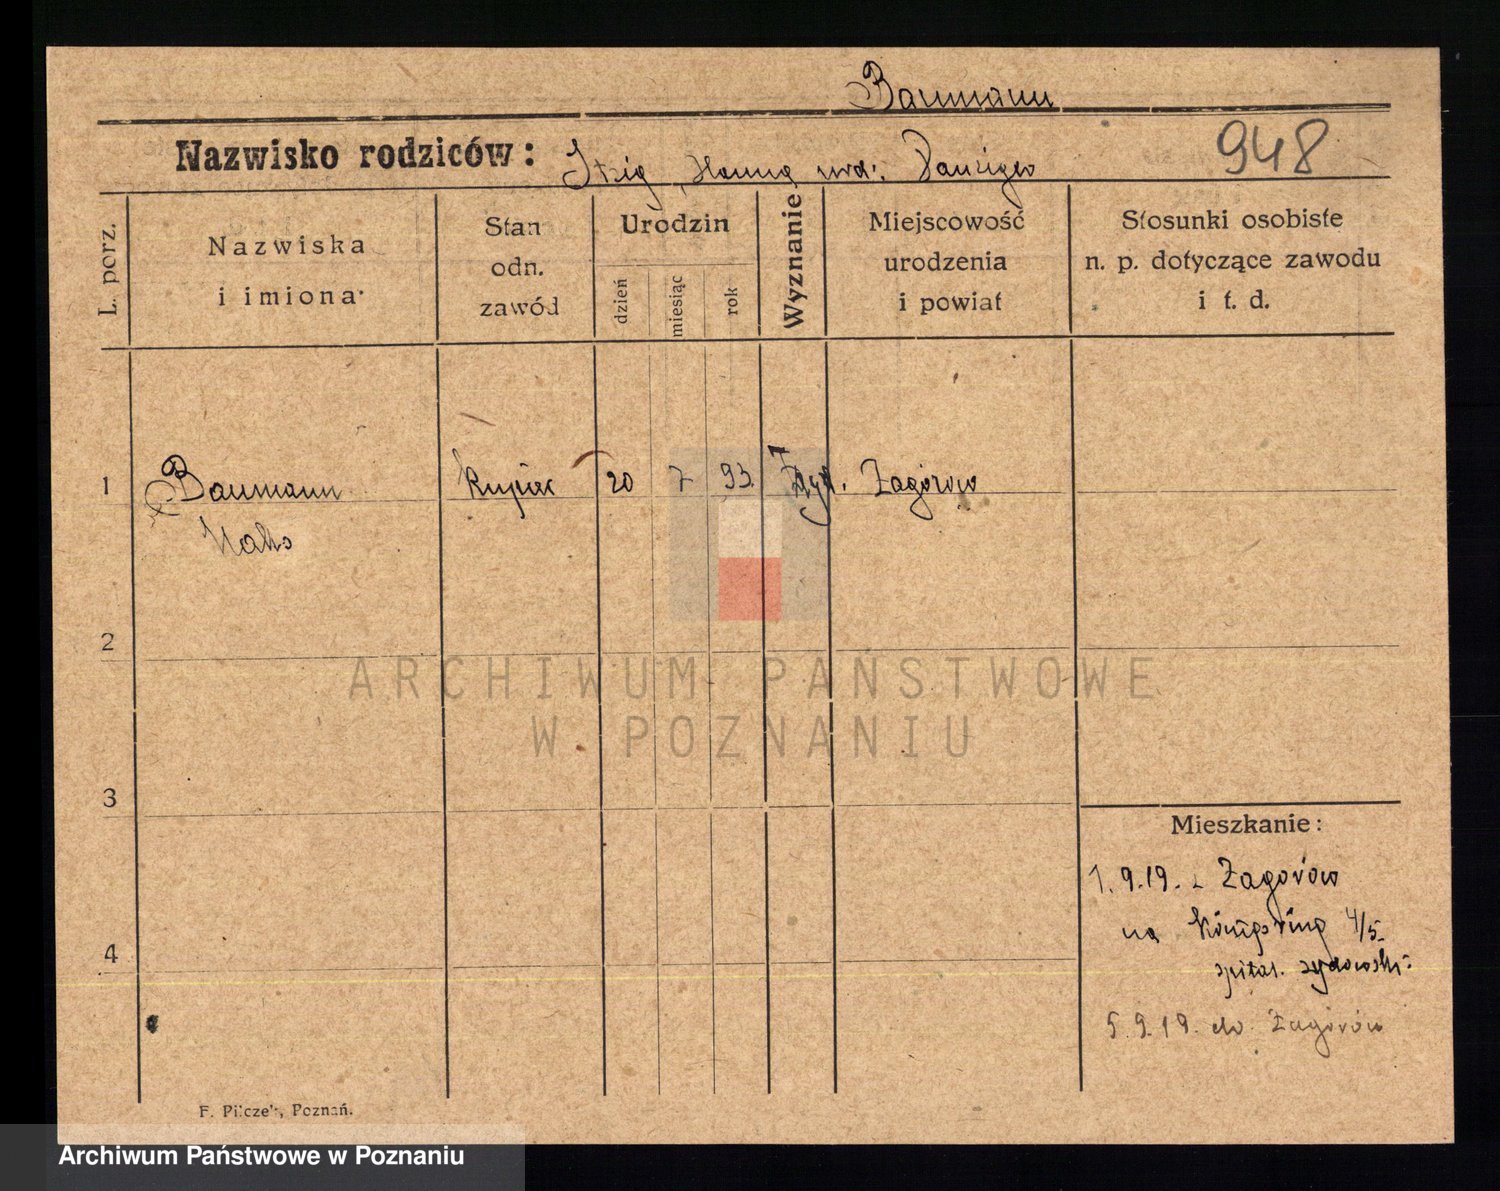 Baumann
948
Nazwisko rodziców: Itzig, Hanna urd. Danziger
L. porz.
Nazwiska i imiona
Stan odn. zawód
Urodzin
dzień
miesiąc
rok
Wyznanie
Miejscowość urodzenia i powiat
Stosunki osobiste n. p. dotyczące zawodu i t. d.
1 Baumann kupiec 20 7 93. żyd. Zagórow
2
3
4
Mieszkanie:
1.9.19. z Zagorów
na Königsring 4/5
szpital. żydowski
5.9.19. do Zagórów
F. Pilczek, Poznań.
ARCHIWUM PAŃSTWOWE
W POZNANIU
Archiwum Państwowe w Poznaniu